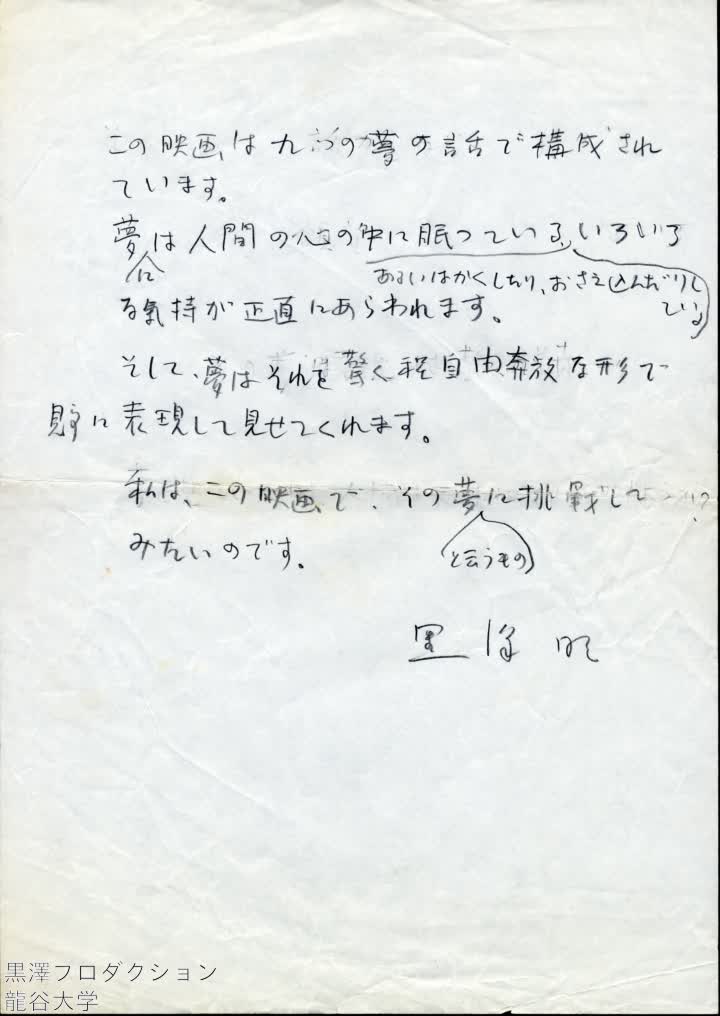 この映画は九つの夢の話で構成され
ています。
夢は人間の心の中に眠っている、いろいろ
に
あるいはかくしたり、おさえ込んだりし
ている
る気持が正直にあらわれます。
そして、夢はそれを驚く程自由奔放な形で
に表現して見せてくれます。
私は、この映画で、その夢に挑戦して
みたいのです。
と云うもの
黒澤明
黒澤プロダクション
龍谷大学